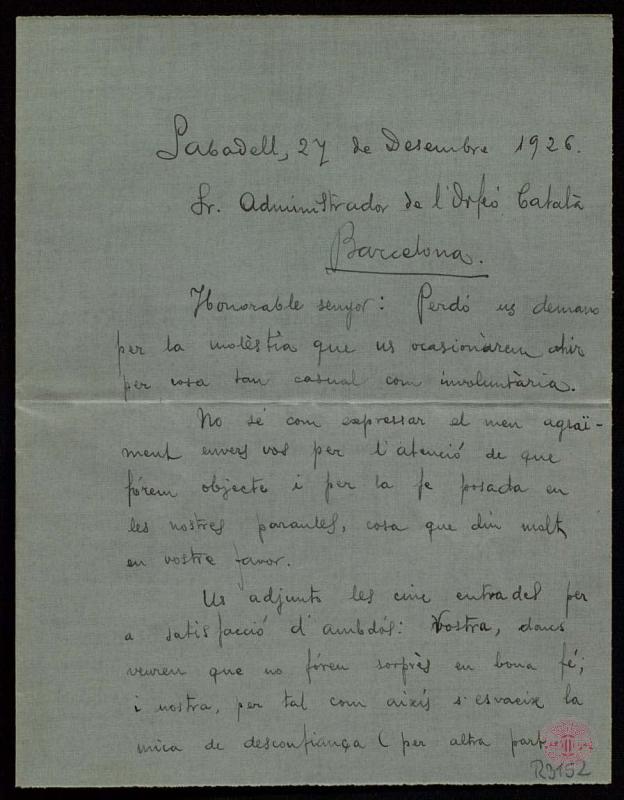 Sabadell, 27 de Desembre 1926.
Sr. Administrador de l'Orfeó Català
Barcelona.
Honorable senyor: Perdó us demano
per la molèstia que us ocasionàrem ahir
per cosa tan casual com involuntària.
No sé com expressar el meu agraï-
ment envers vos per l'atenció de que
fórem objecte i per la fe posada en
les nostres paraules, cosa que diu molt
en vostre favor.
Us adjunto les cinc entrades per
a satisfacció d'ambdós: Vostra, doncs
veureu que no fóreu sorprès en bona fé;
i nostra, per tal com aixís s'esvaeix la
mica de desconfiança (per altra part
R3152